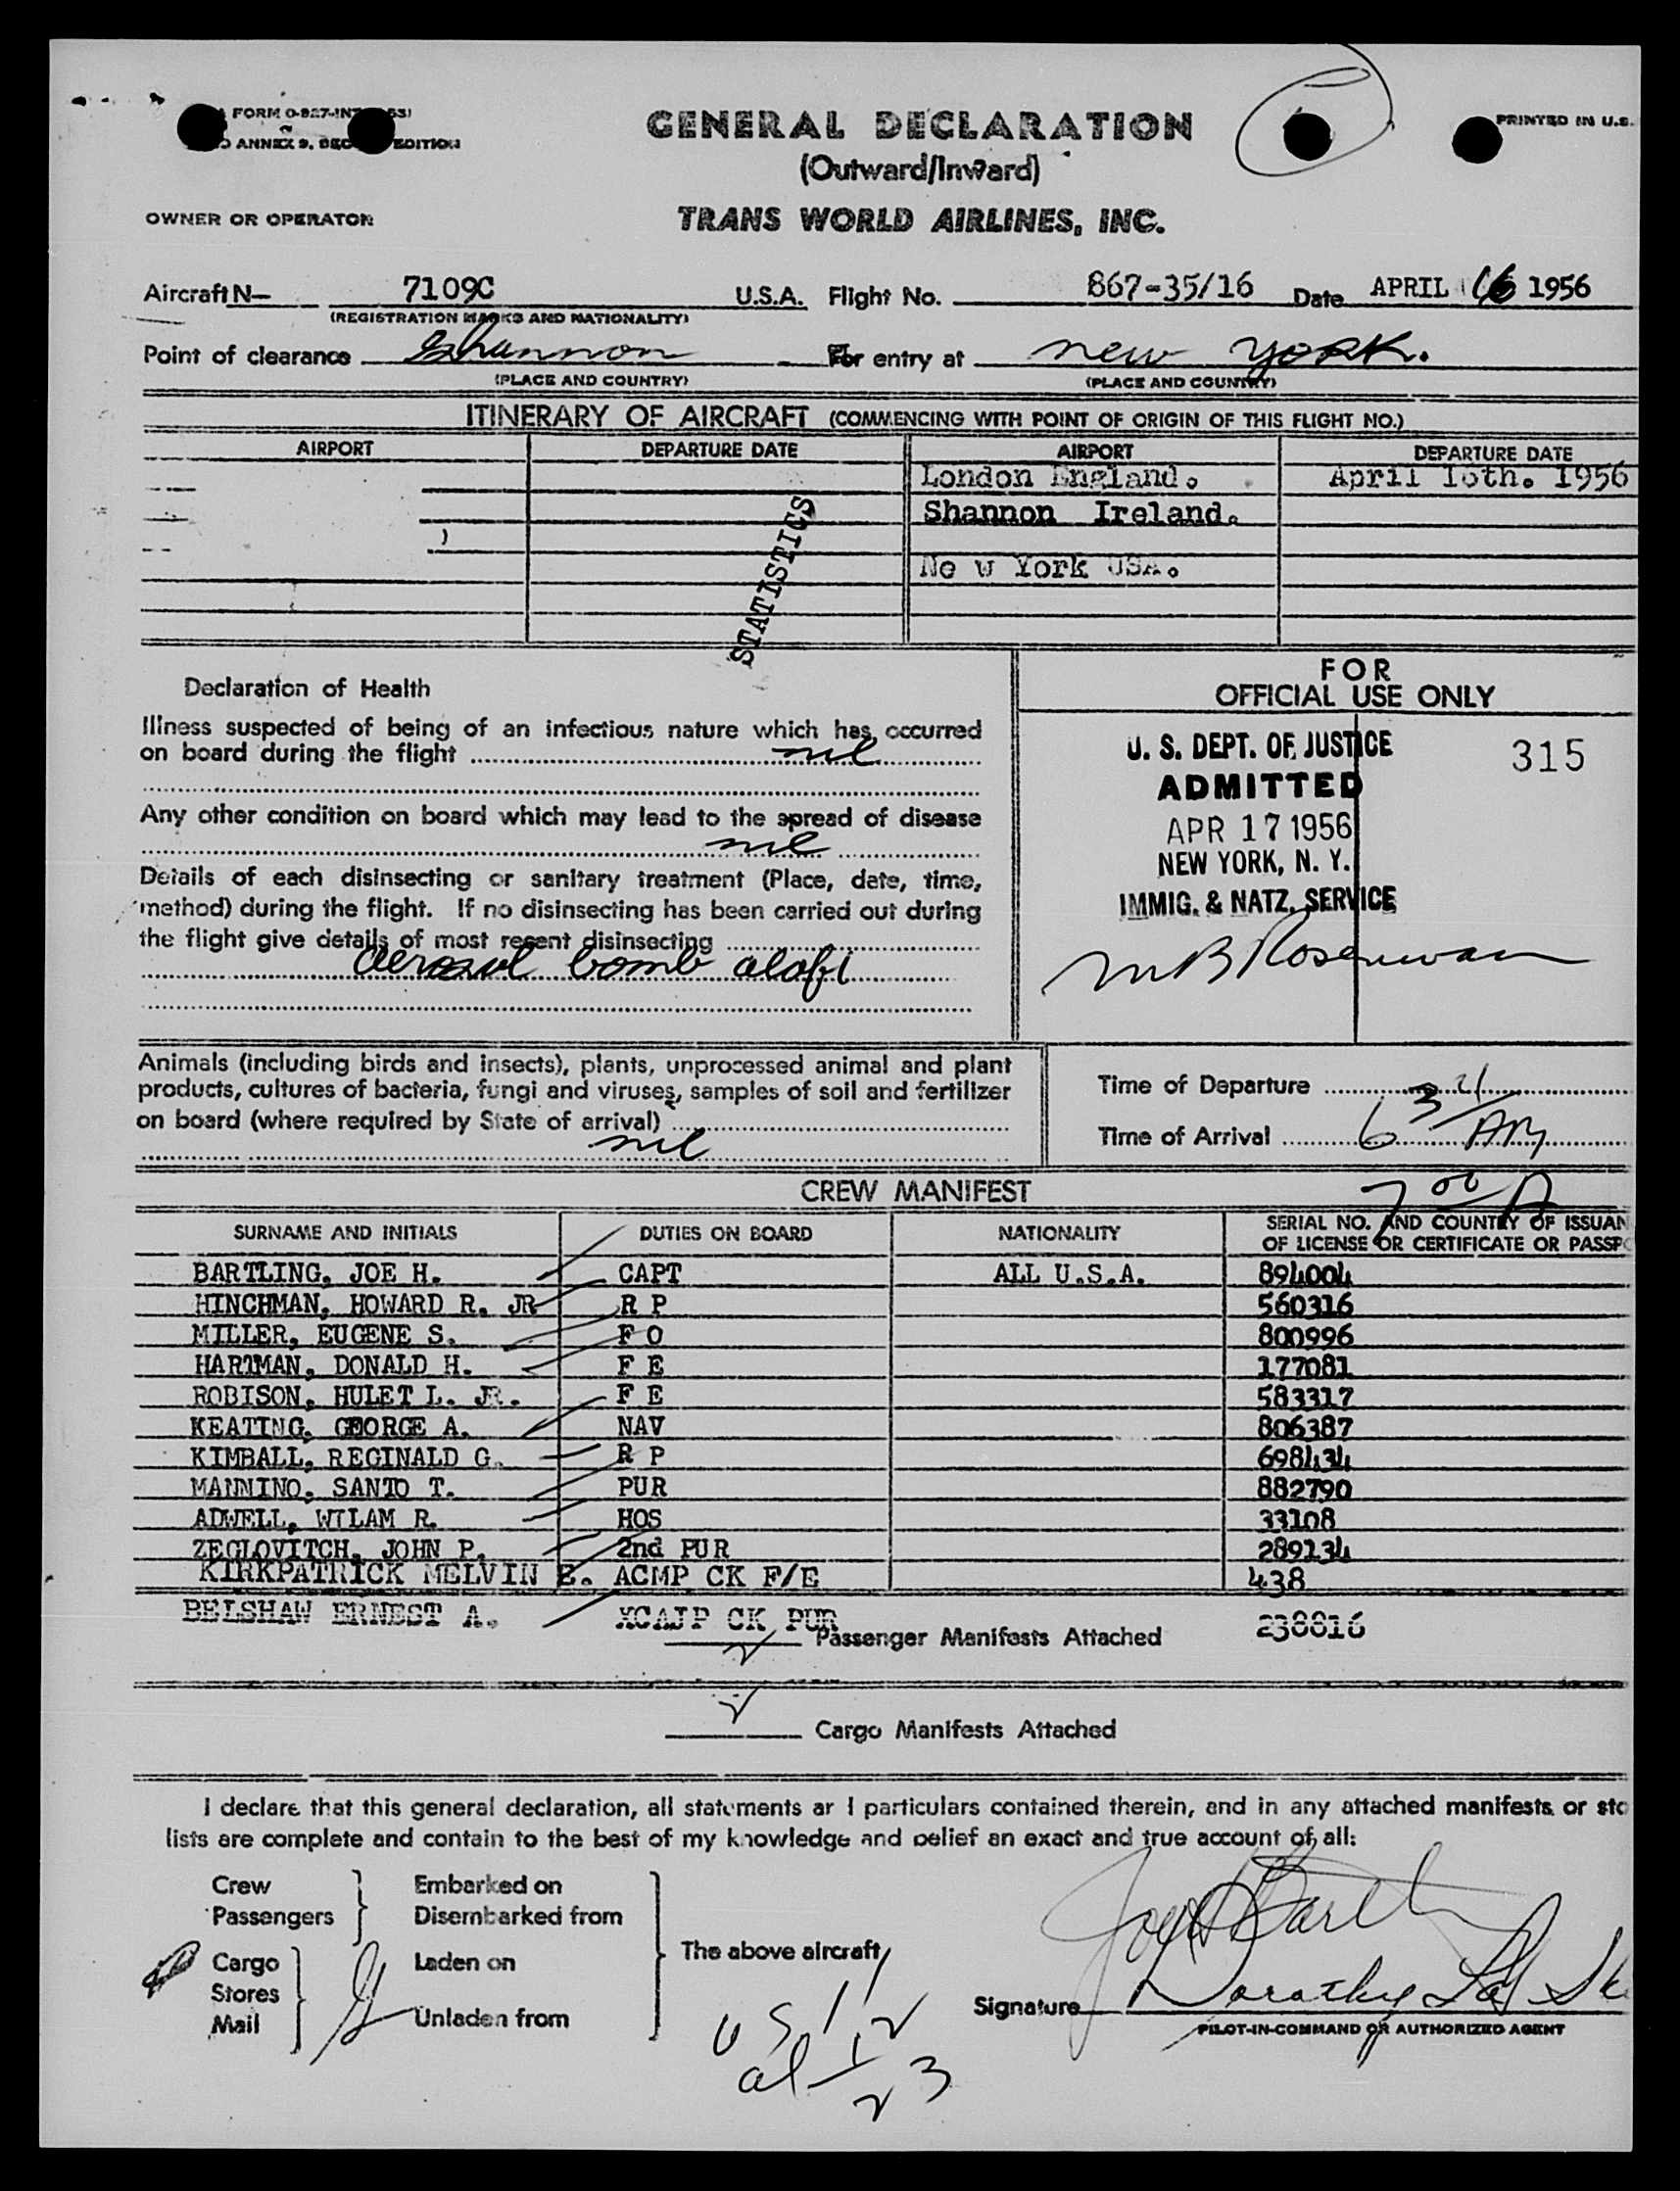 FORM O-927-IN
GENERAL DECLARATION
PRINTED IN U.S.
ANNEX 9, EDITION
(Outward/Inward)
OWNER OR OPERATOR
TRANS WORLD AIRLINES, INC.
Aircraft N— 7109C U.S.A. Flight No. 867-35/16 Date APRIL 16 1956
(REGISTRATION MARKS AND NATIONALITY)
Point of clearance Shannon For entry at new york.
(PLACE AND COUNTRY) (PLACE AND COUNTRY)
ITINERARY OF AIRCRAFT (COMMENCING WITH POINT OF ORIGIN OF THIS FLIGHT NO.)
AIRPORT DEPARTURE DATE AIRPORT DEPARTURE DATE
London England. April 16th. 1956
Shannon Ireland.
Ne w York USA.
STATISTICS
Declaration of Health
Illness suspected of being of an infectious nature which has occurred
on board during the flight nil
Any other condition on board which may lead to the spread of disease
nil
Details of each disinsecting or sanitary treatment (Place, date, time,
method) during the flight. If no disinsecting has been carried out during
the flight give details of most resent disinsecting
aerosol bomb
FOR
OFFICIAL USE ONLY
U. S. DEPT. OF JUSTICE 315
ADMITTED
APR 17 1956
NEW YORK, N. Y.
IMMIG. & NATZ. SERVICE
Animals (including birds and insects), plants, unprocessed animal and plant
products, cultures of bacteria, fungi and viruses, samples of soil and fertilizer
on board (where required by State of arrival)
nil
Time of Departure
Time of Arrival 6 AM
7 00 A
CREW MANIFEST
SURNAME AND INITIALS DUTIES ON BOARD NATIONALITY SERIAL NO. AND COUNTRY OF ISSUAN
OF LICENSE OR CERTIFICATE OR PASSPO
BARTLING, JOE H. CAPT ALL U.S.A. 894004
HINCHMAN, HOWARD R. JR R P 560316
MILLER, EUGENE S. F O 800996
HARTMAN, DONALD H. F E 177081
ROBISON, HULET L. JR. F E 583317
KEATING, GEORGE A. NAV 806387
KIMBALL, REGINALD G. R P 698434
MANNINO, SANTO T. PUR 882790
ADWELL, WILAM R. HOS 33108
ZEGLOVITCH, JOHN P. 2nd PUR 289134
KIRKPATRICK MELVIN E. ACMP CK F/E 438
BELSHAW ERNEST A. CK PUR 230816
Passenger Manifests Attached
Cargo Manifests Attached
I declare that this general declaration, all statements and particulars contained therein, and in any attached manifests or sto
lists are complete and contain to the best of my knowledge and belief an exact and true account of all:
Crew Embarked on
Passengers Disembarked from
The above aircraft
Cargo Laden on
Stores
Mail Unladen from
Signature Dorothy
PILOT-IN-COMMAND OR AUTHORIZED AGENT
US 11 2
al 1 3
2